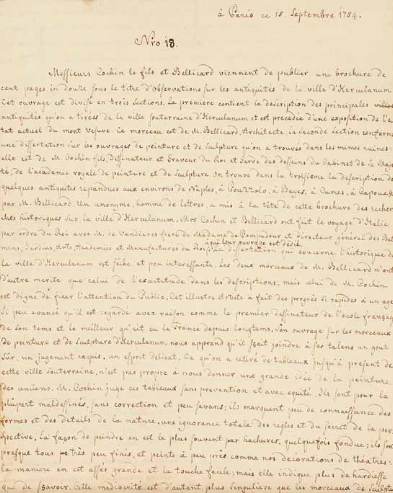 à Paris ce 15 Septembre 1754.
Nro 18.
Messieurs Cochin le fils et Bellicard viennent de publier une brochure de
cent pages in douze sous le titre d'Observations sur les antiquités de la ville d'Herculanum
Cet ouvrage est divisé en trois sections. La première contient la description des principales
antiquités qu'on a tirées de la ville souterraine d'Herculanum: et est précédée d'une exposition de l'e
tat actuel du mont Vesuve. Ce morceau est de M. Bellicard, Architecte. La seconde section renferme
une dissertation sur les ouvrages de peinture et de sculpture qu'on a trouvés dans les mêmes ruines:
elle est de M. Cochin fils, Dessinateur et Graveur du Roi et Garde des desseins du Cabinet de sa Maj
té, de l'académie royale de peinture et de sculpture. On trouve dans la troisième la description de
quelques antiquités répandues aux environs de Naples, à Pouzzolo, à Bayes, à Cumes, à Capoue
par M. Bellicard. Un anonyme, homme de lettres, a mis à la tête de cette brochure des recher
ches historiques sur la ville d'Herculanum. Mrs Cochin et Bellicard ont fait le voyage d'Italie
par ordre du Roi avec M. de Vandieres frère de Madame de Pompadour et Directeur général des Bati
mens, Jardins, Arts, Académies et Manufactures du Roi
à qui leur ouvrage est dédié.
La dissertation qui concerne l'historique de
la ville d'Herculanum est sèche et peu intéressante. Les deux morceaux de M. Bellicard n'ont
d'autre mérite que celui de l'exactitude dans les descriptions, mais celui de M. Cochin
est digne de fixer l'attention du Public. Cet illustre Artiste a fait des progrès si rapides à un age
si peu avancé qu'il est regardé avec raison comme le premier dessinateur de l'école françoise
de son tems et le meilleur qu'il ait eu la France depuis longtems. Son ouvrage sur les morceaux
de peinture et de sculpture d'Herculanum nous apprend qu'il sçait joindre à ses talens un gout
sûr, un jugement exquis, un esprit delicat. Ce qu'on a retiré de tableaux jusqu'à présent de
cette ville souterraine, n'est pas propre à nous donner une grande idée de la peinture
des anciens. M. Cochin juge ces tableaux sans prévention et avec équité. Ils sont pour la
plûpart mal dessinés, sans correction et peu savans; ils marquent peu de connaissance des
formes et des détails de la nature, une ignorance totale des regles et du secret de la per
spective, la façon de peindre en est le plus souvent par hachures, quelquefois fondue; ils sont
presque tous très peu finis, et peints à peu près comme nos décorations de théatres:
la manière en est assés grande et la touche facile, mais elle indique plus de hardiesse
que de savoir. Cette médiocrité est d'autant plus singulière que les morceaux de sculptu